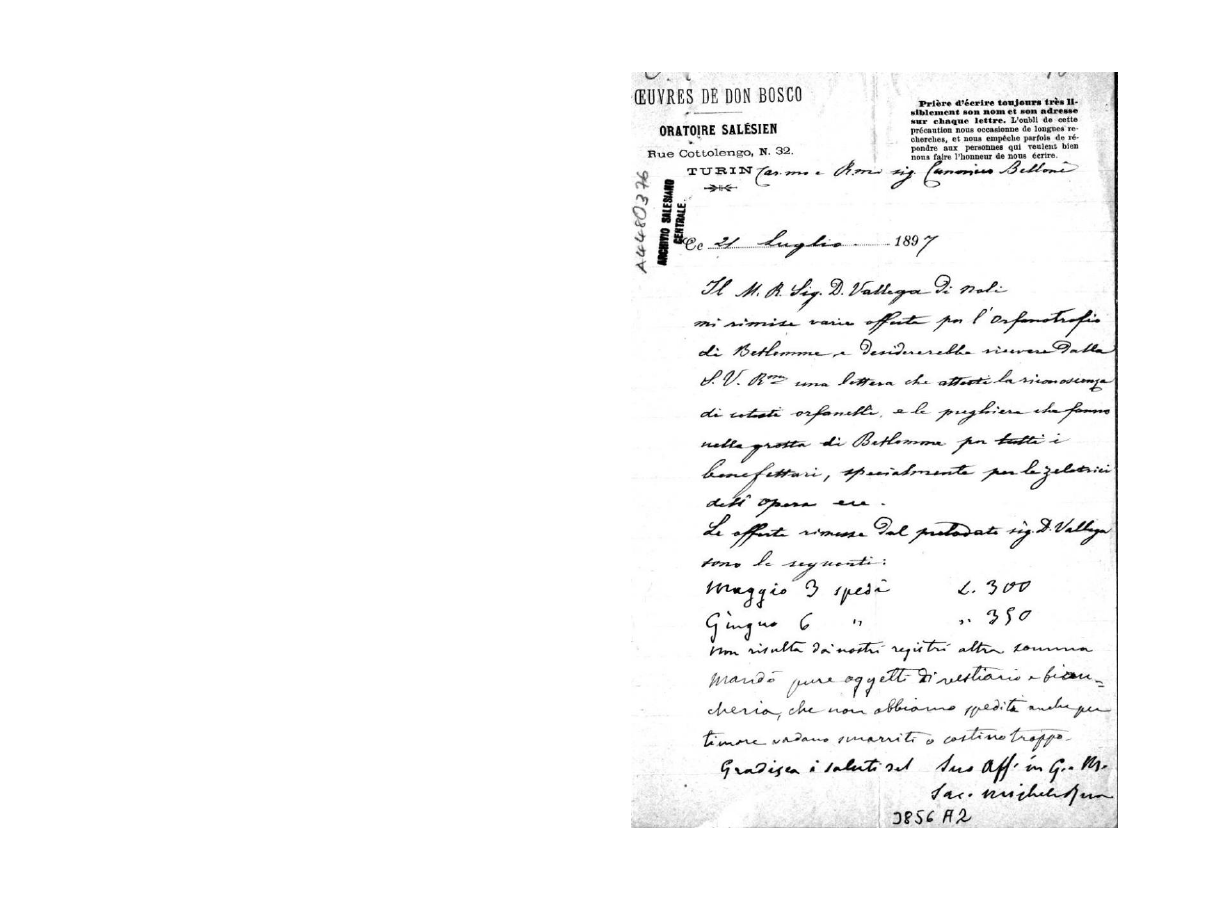 ŒUVRES DE DON BOSCO
ORATOIRE SALÉSIEN
Rue Cottolengo, N. 32.
TURIN
Prière d'écrire toujours très li-
siblement son nom et son adresse
sur chaque lettre. L'oubli de cette
précaution nous occasionne de longues re-
cherches, et nous empêche parfois de ré-
pondre aux personnes qui veulent bien
nous faire l'honneur de nous écrire.
Car.mo e R.mo sig. Canonico Belloni
A4480376
ARCHIVIO SALESIANO
CENTRALE
Ce 21 Luglio 1897
Il M. R. Sig. D. Vallega di Noli
mi rimise varie offerte per l'Orfanotrofio
di Betlemme, e desidererebbe ricevere dalla
S. V. R.ma una lettera che attesti la riconoscenza
di cotesti orfanelli, e le preghiere che fanno
nella grotta di Betlemme per tutti i
benefattori, specialmente per le zelatrici
dell'opera ecc.
Le offerte rimesse dal prelodato sig. D. Vallega
sono le seguenti:
Maggio 3 spedì L. 300
Giugno 6 " " 350
Non risulta dai nostri registri altra somma
Mandò pure oggetti di vestiario e bian=
cheria, che non abbiamo spedita anche per
timore vadano smarriti o costino troppo.
Gradisca i saluti del Suo Aff. in G. e M.
Sac. Michele Rua
3856 A2